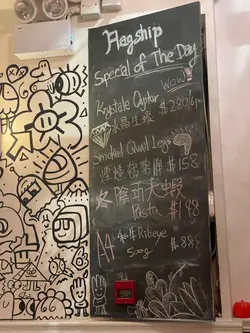 Flagship
Special of The Day
WOW!
Krystale Oyster
水晶生蠔 $280/6pc
Smoked Quail Legs
$158
冬陰功大蝦
Pasta $198
A4 和牛 Ribeye
500g $888